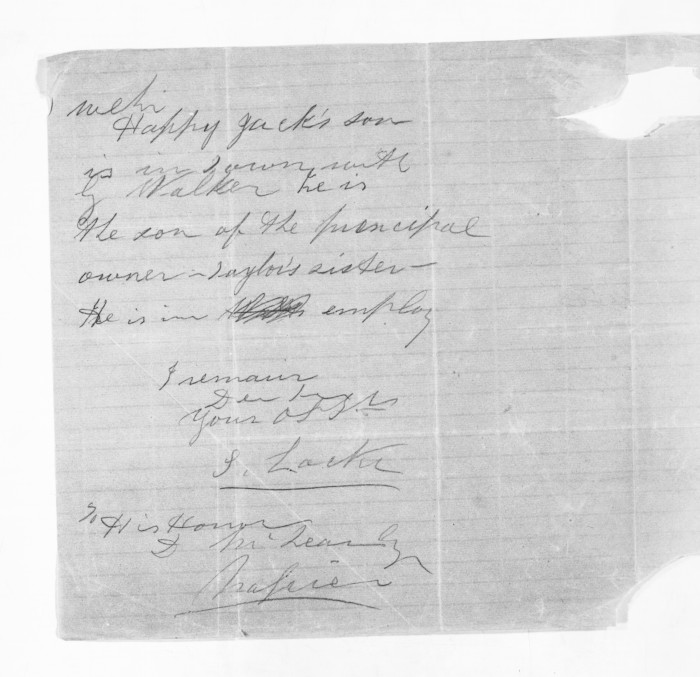 Happy Jack's son
is in Town with
G Walker he is
the son of the principal
owner - Taylor's sister -
He is in employ
I remain
Your Obt St
S. Locke
To His Honor
D McLean Esqr
Napier